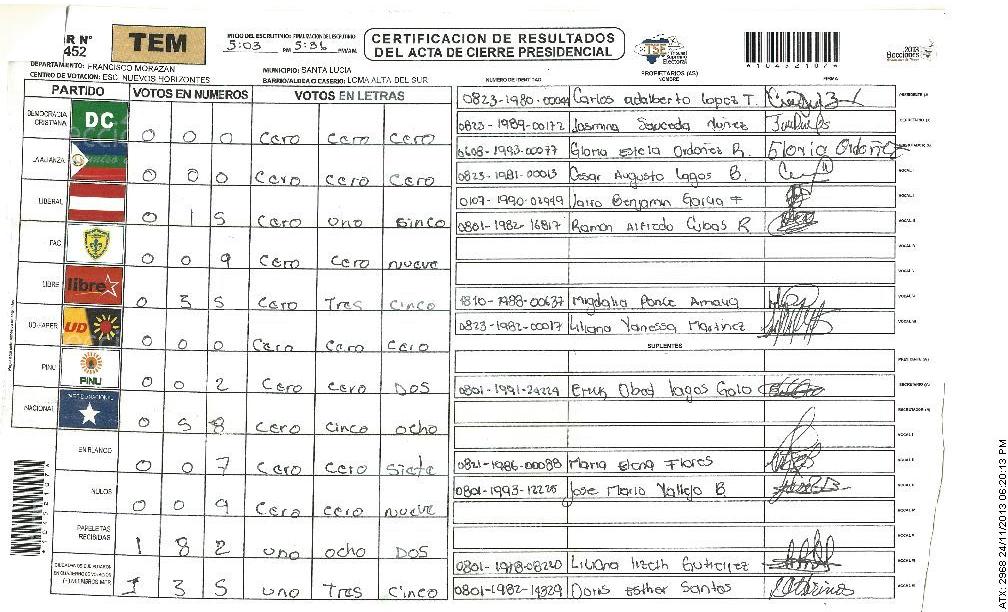 R N°
452
TEM
INICIO DEL ESCRUTINIO: FINALIZACION DEL ESCRUTINIO
5:03 PM 5:36 PM/AM.
CERTIFICACION DE RESULTADOS
DEL ACTA DE CIERRE PRESIDENCIAL
TSE Tribunal Supremo Electoral
2013
Elecciones
DEPARTAMENTO: FRANCISCO MORAZAN
MUNICIPIO: SANTA LUCIA
CENTRO DE VOTACION: ESC. NUEVOS HORIZONTES
BARRIO/ALDEA O CASERIO: LOMA ALTA DEL SUR
NUMERO DE IDENTIDAD
PROPIETARIOS (AS)
NOMBRE
FIRMA
PARTIDO VOTOS EN NUMEROS VOTOS EN LETRAS
DEMOCRACIA CRISTIANA DC 0 0 0 Cero Cero Cero
LA ALIANZA 0 0 0 Cero Cero Cero
LIBERAL 0 1 5 Cero uno Cinco
PAC 0 0 9 Cero Cero nueve
LIBRE libre 0 3 5 Cero Tres Cinco
UD-FAPER UD 0 0 0 Cero Cero Cero
PINU PINU 0 0 2 Cero Cero DOS
NACIONAL 0 5 8 Cero Cinco ocho
EN BLANCO 0 0 7 Cero Cero Siete
NULOS 0 0 9 Cero Cero nueve
PAPELETAS RECIBIDAS 1 8 2 uno ocho DOS
1 3 5 uno Tres Cinco
Carlos adalberto Lopez T. PRESIDENTE (A)
0823-1989-00172 Jasmina Sauceda Nuñez SECRETARIO (A)
0608-1993-00077 Gloria Estela Ordoñez R. Gloria Ordoñez
0823-1981-00013 Cesar Augusto Lagos B. VOCAL I
0107-1990-02949 Jairo Benjamin Garcia F VOCAL II
0801-1982-16817 Ramon Alfredo Cubas R.
1810-1988-00637 Migdalia Ponce Amaya
0823-1982-00017 Liliana Vanessa Martinez
SUPLENTES
PRESIDENTE (A)
0801-1991-24224 Erick Obed Lagos SECRETARIO (A)
ESCRUTADOR (A)
VOCAL I
0821-1986-00088 Maria Elena Flores
0801-1993-12225 Jose Mario Vallejo B.
Liliana lizeth Gutierrez
0801-1982-14329 Doris Esther Santos
ATX 2968 24/11/2013 06:20:13 PM